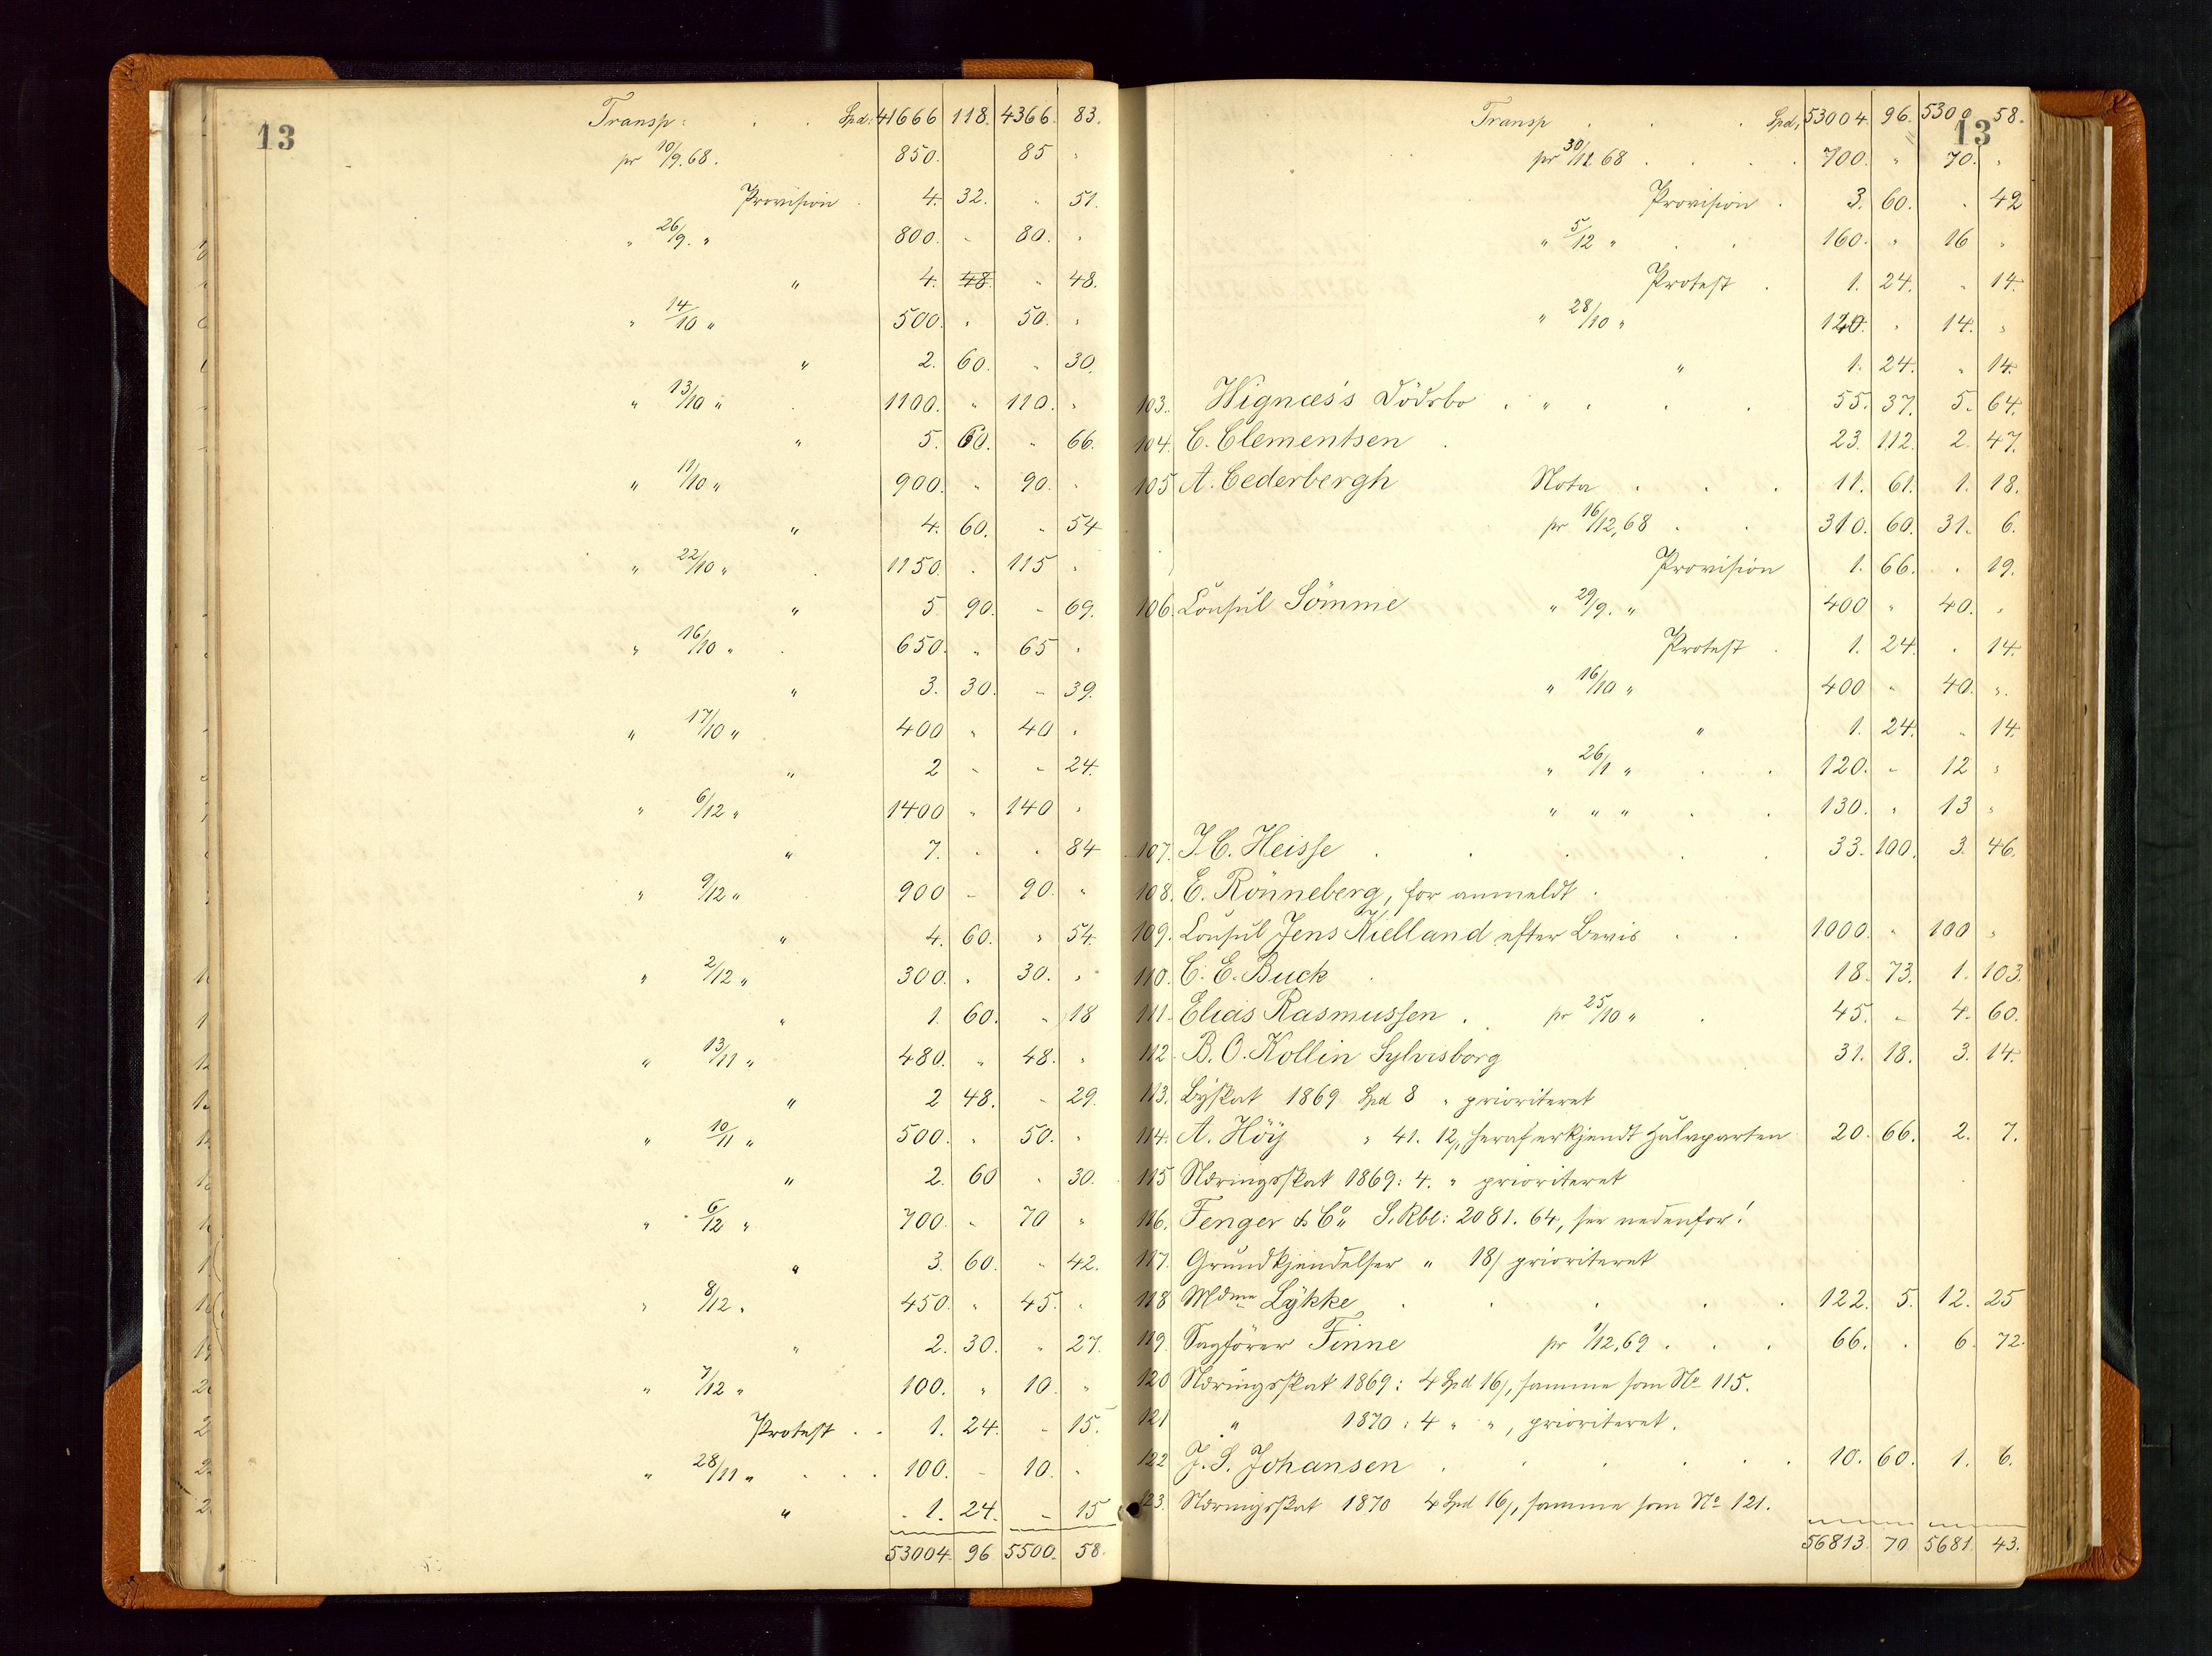 13
Transp: . . Spd: 41666 118. 4366. 83.
pr 10/9.68. 850. 85 "
Provision . 4. 32. " 51.
" 26/9. " 800. - 80. "
" 4. 48. " 48.
" 14/10 " 500. " 50. "
" 2. 60. " 30.
" 13/10 " . 1100. " 110. "
" 5. 60. " 66.
" 11/10 " 900. " 90. "
" 4. 60. " 54
" 22/10 " . 1150. . 115 "
" 5. 90. - 69.
" 16/10 " . 650. " 65 "
" 3. 30. - 39.
" 17/10 " . 400 " 40 "
" 2 - - 24.
" 6/12 " 1400 " 140 "
" 7. " " 84
" 9/12 " 900 - 90. "
" 4. 60. " 54.
" 2/12 " 300. " 30. "
" 1. 60. " 18
" 13/11 " 480. " 48. "
" 2 48. - 29.
" 10/11 " 500. " 50. "
" 2. 60 " 30.
" 6/12 " 700. - 70 "
" 3. 60. " 42.
" 8/12 " 450. " 45. "
" 2. 30. " 27.
" 7/12 " 100. " 10. "
Protest . . 1. 24. - 15.
" 28/11 " . . . 100. - 10. "
" 1. 24. - 15
53004. 96 5500. 58.
13
Transp . . . Spd, 53004. 96. 5300 58.
pr 30/11 68 . . . . 700. " 70. "
Provision . 3. 60. . 42
" 5/12 " . . 160. " 16 "
Protest . 1. 24. " 14.
" 28/10 " 120. " 14. "
" 1. 24. " 14.
103. Wignæs's Dödsbo . " . . . 55. 37. 5. 64.
104. C. Clementsen . 23. 112. 2. 47.
105 A. Cederbergh Nota . . . 11. 61. 1. 18.
pr 16/12,68 . . 310. 60. 31. 6.
Provision 1. 66. . 19.
106. Consul Sömme " 29/9. " 400 " 40. "
Protest . 1. 24. . 14.
" 16/10 " 400 " 40. "
" 1. 24. " 14.
" 26/1 " . . 120. - 12 "
" " " . . 130. " 13 "
107. J. C. Heisse . . . . . 33. 100. 3. 46.
108. E. Rönneberg, for anmeldt .
109. Consul Jens Kielland efter Bevis . . 1000. " 100 "
110. C. E. Buck . 18. 73. 1. 103.
111. Elias Rasmussen . pr 25/10 " . 45. - 4. 60.
112. B. O. Kollin Sylvisborg 31. 18. 3. 14.
113. Byskat 1869 Spd 8 " prioriteret
114. A. Höij " 41. 12, heraf erkjendt Halvparten 20. 66. 2. 7.
115 Næringsskat 1869: 4. " prioriteret
116. Fenger & Co S. Rbl: 2081. 64, see nedenfor!
117. Grundkjendelser " 18/ prioriteret
118 Mdme Lykke . . . . . 122. 5. 12. 25
119. Sagförer Finne pr 1/12,69 . . . 66. . 6. 72.
120 Næringsskat 1869: 4 Spd 16/, samme som No 115.
121 " 1870 : 4 " ", prioriteret.
122 J. S. Johansen . . . . . 10. 60. 1. 6.
123. Næringsskat 1870 4 Spd 16/, samme som No 121.
56813. 70 5681. 43.